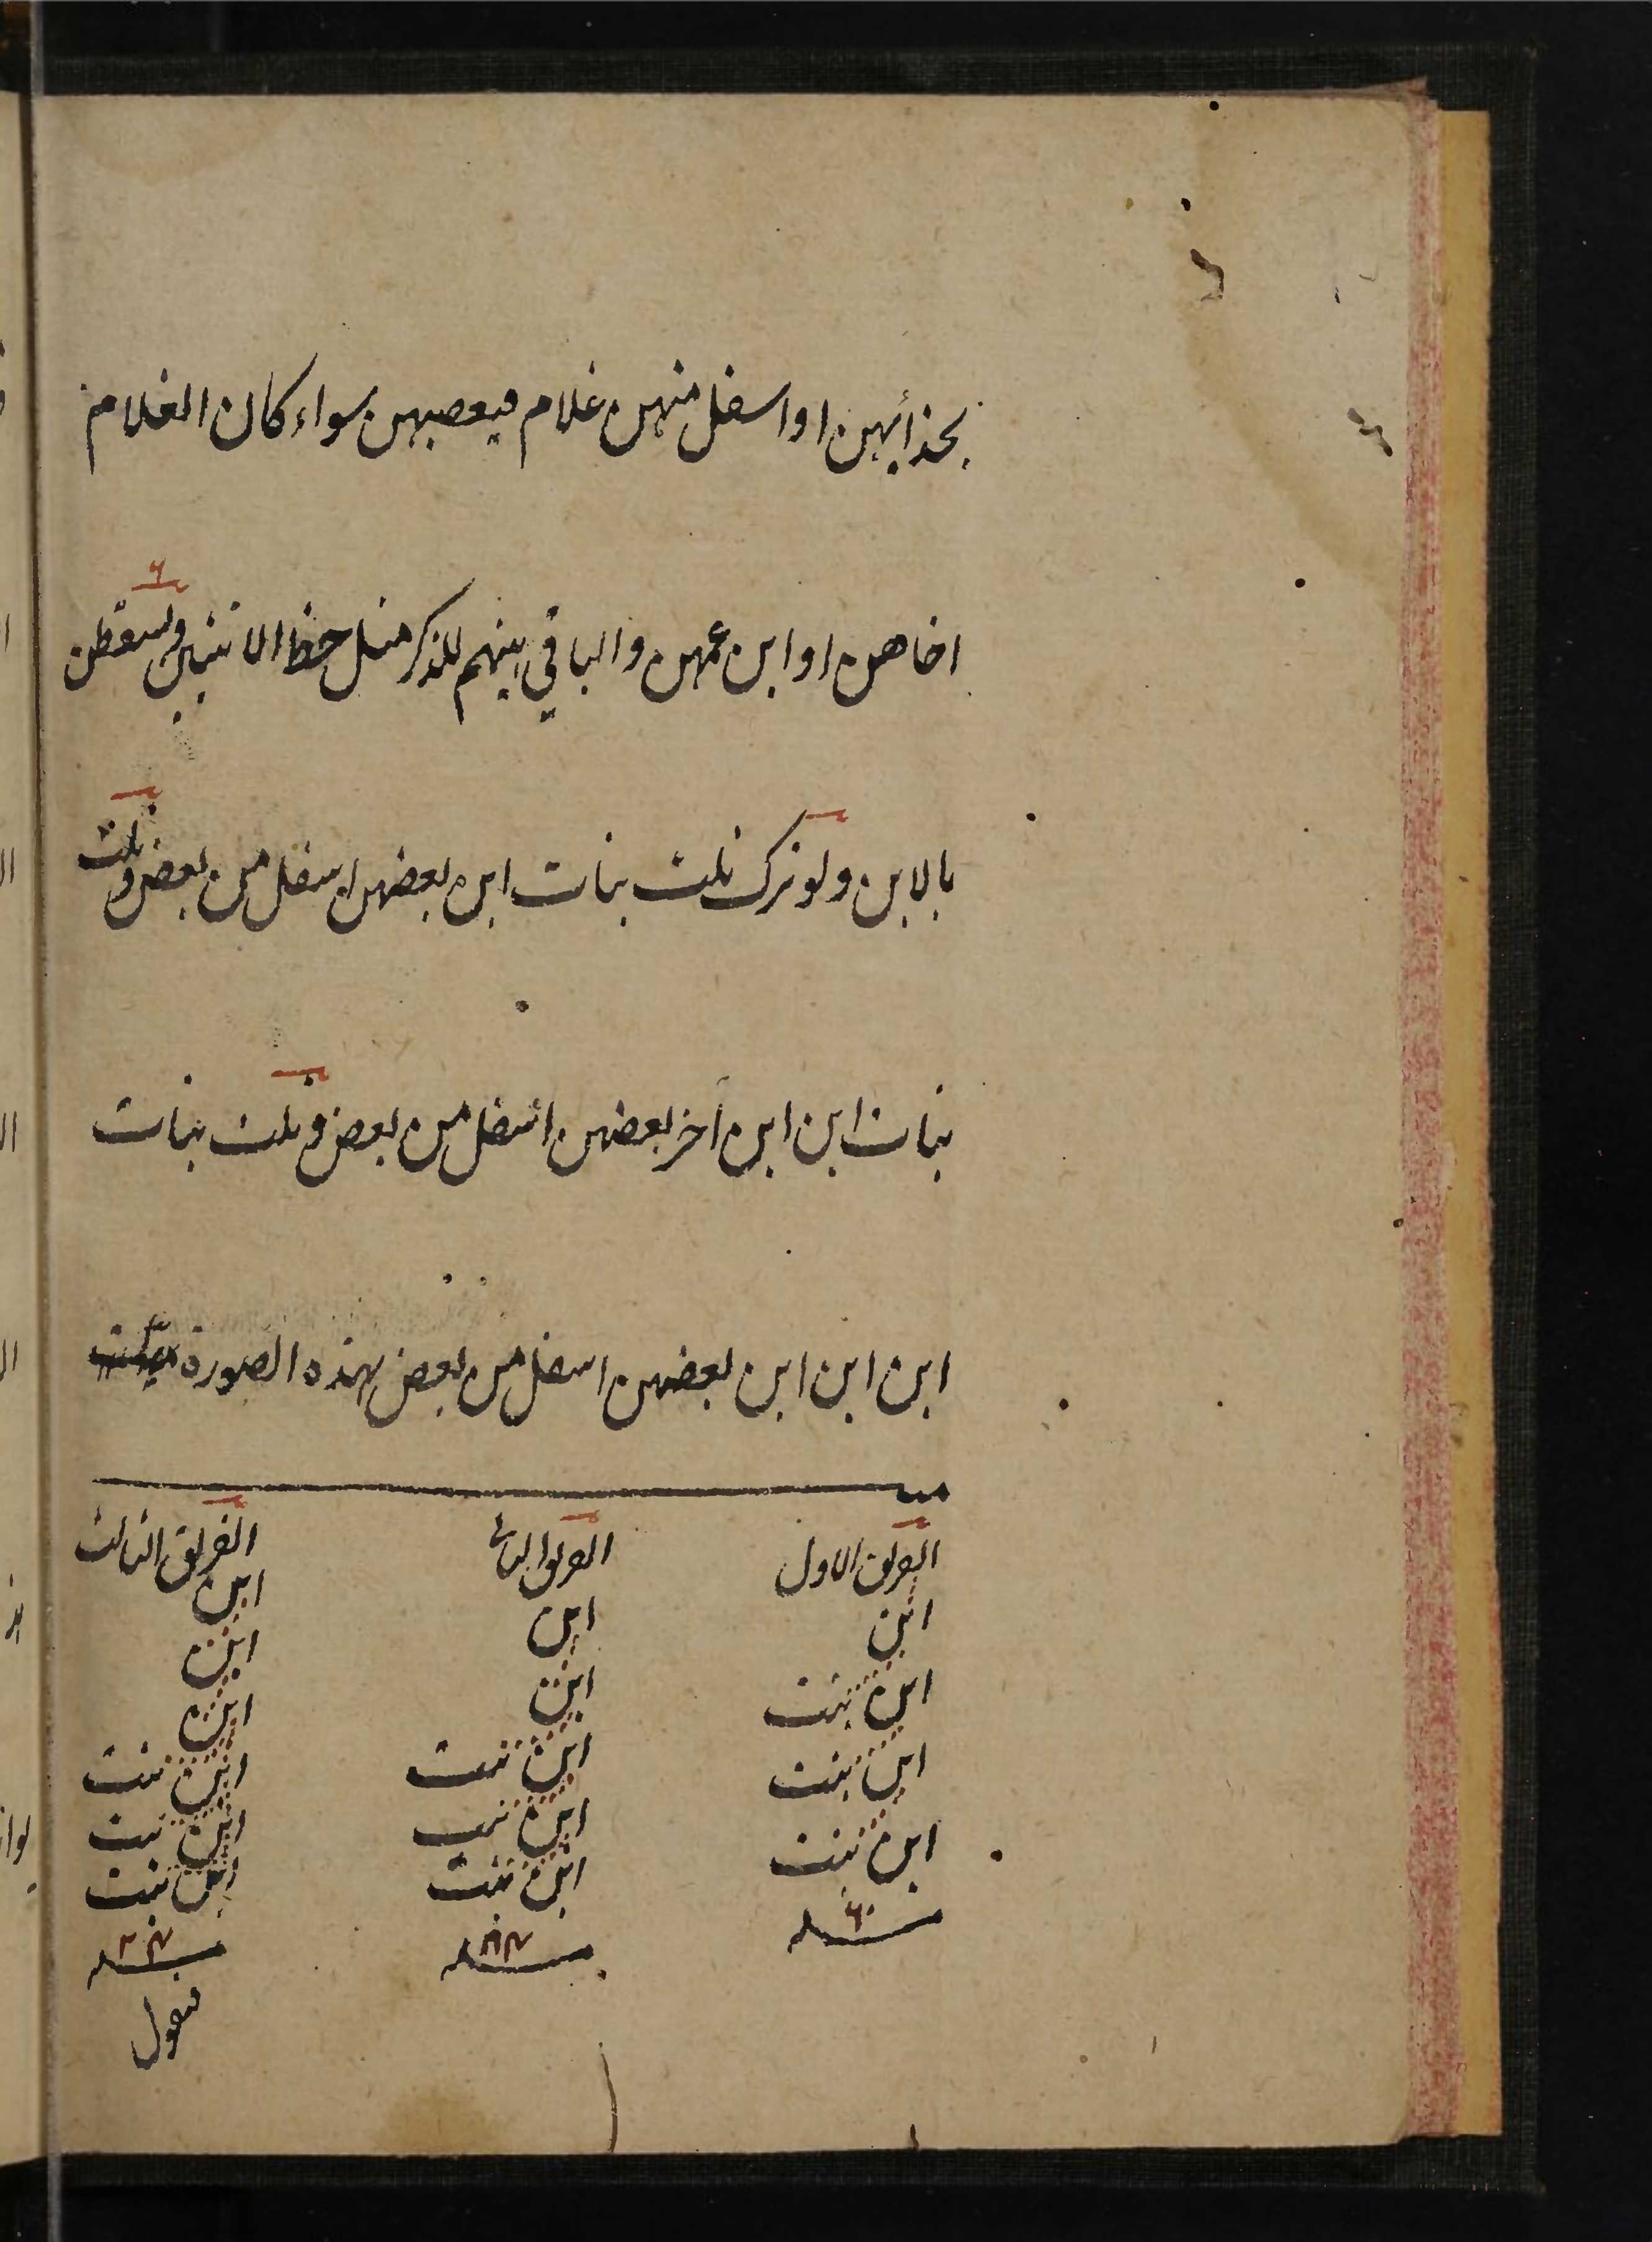 بحذائهن او اسفل منهن غلام فيعصبهن سواء كان الغلام
اخاهن او ابن عمهن والباقي بينهم للذكر مثل حظ الانثيين ويسقطن
بالابن ولو ترك ثلث بنات ابن بعضهن اسفل من بعض وثلث
بنات ابن ابن آخر بعضهن اسفل من بعض وثلث بنات
ابن ابن ابن بعضهن اسفل من بعض بهذه الصورة
ميت
الفريق الاول الفريق الثاني الفريق الثالث
ابن ابن ابن
ابن بنت ابن ابن
ابن بنت ابن بنت ابن
ابن بنت ابن بنت ابن بنت
ابن بنت ابن بنت
ابن بنت
مسئله مسئله مسئله
فنقول